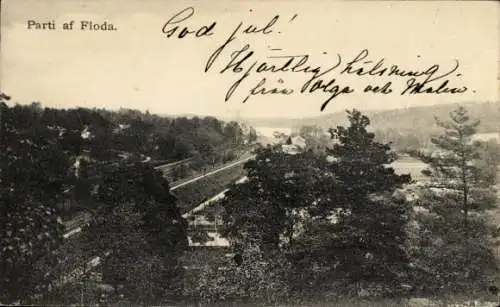 Parti af Floda.
God jul!
Hjärtlig hälsning
från Olga och Malin